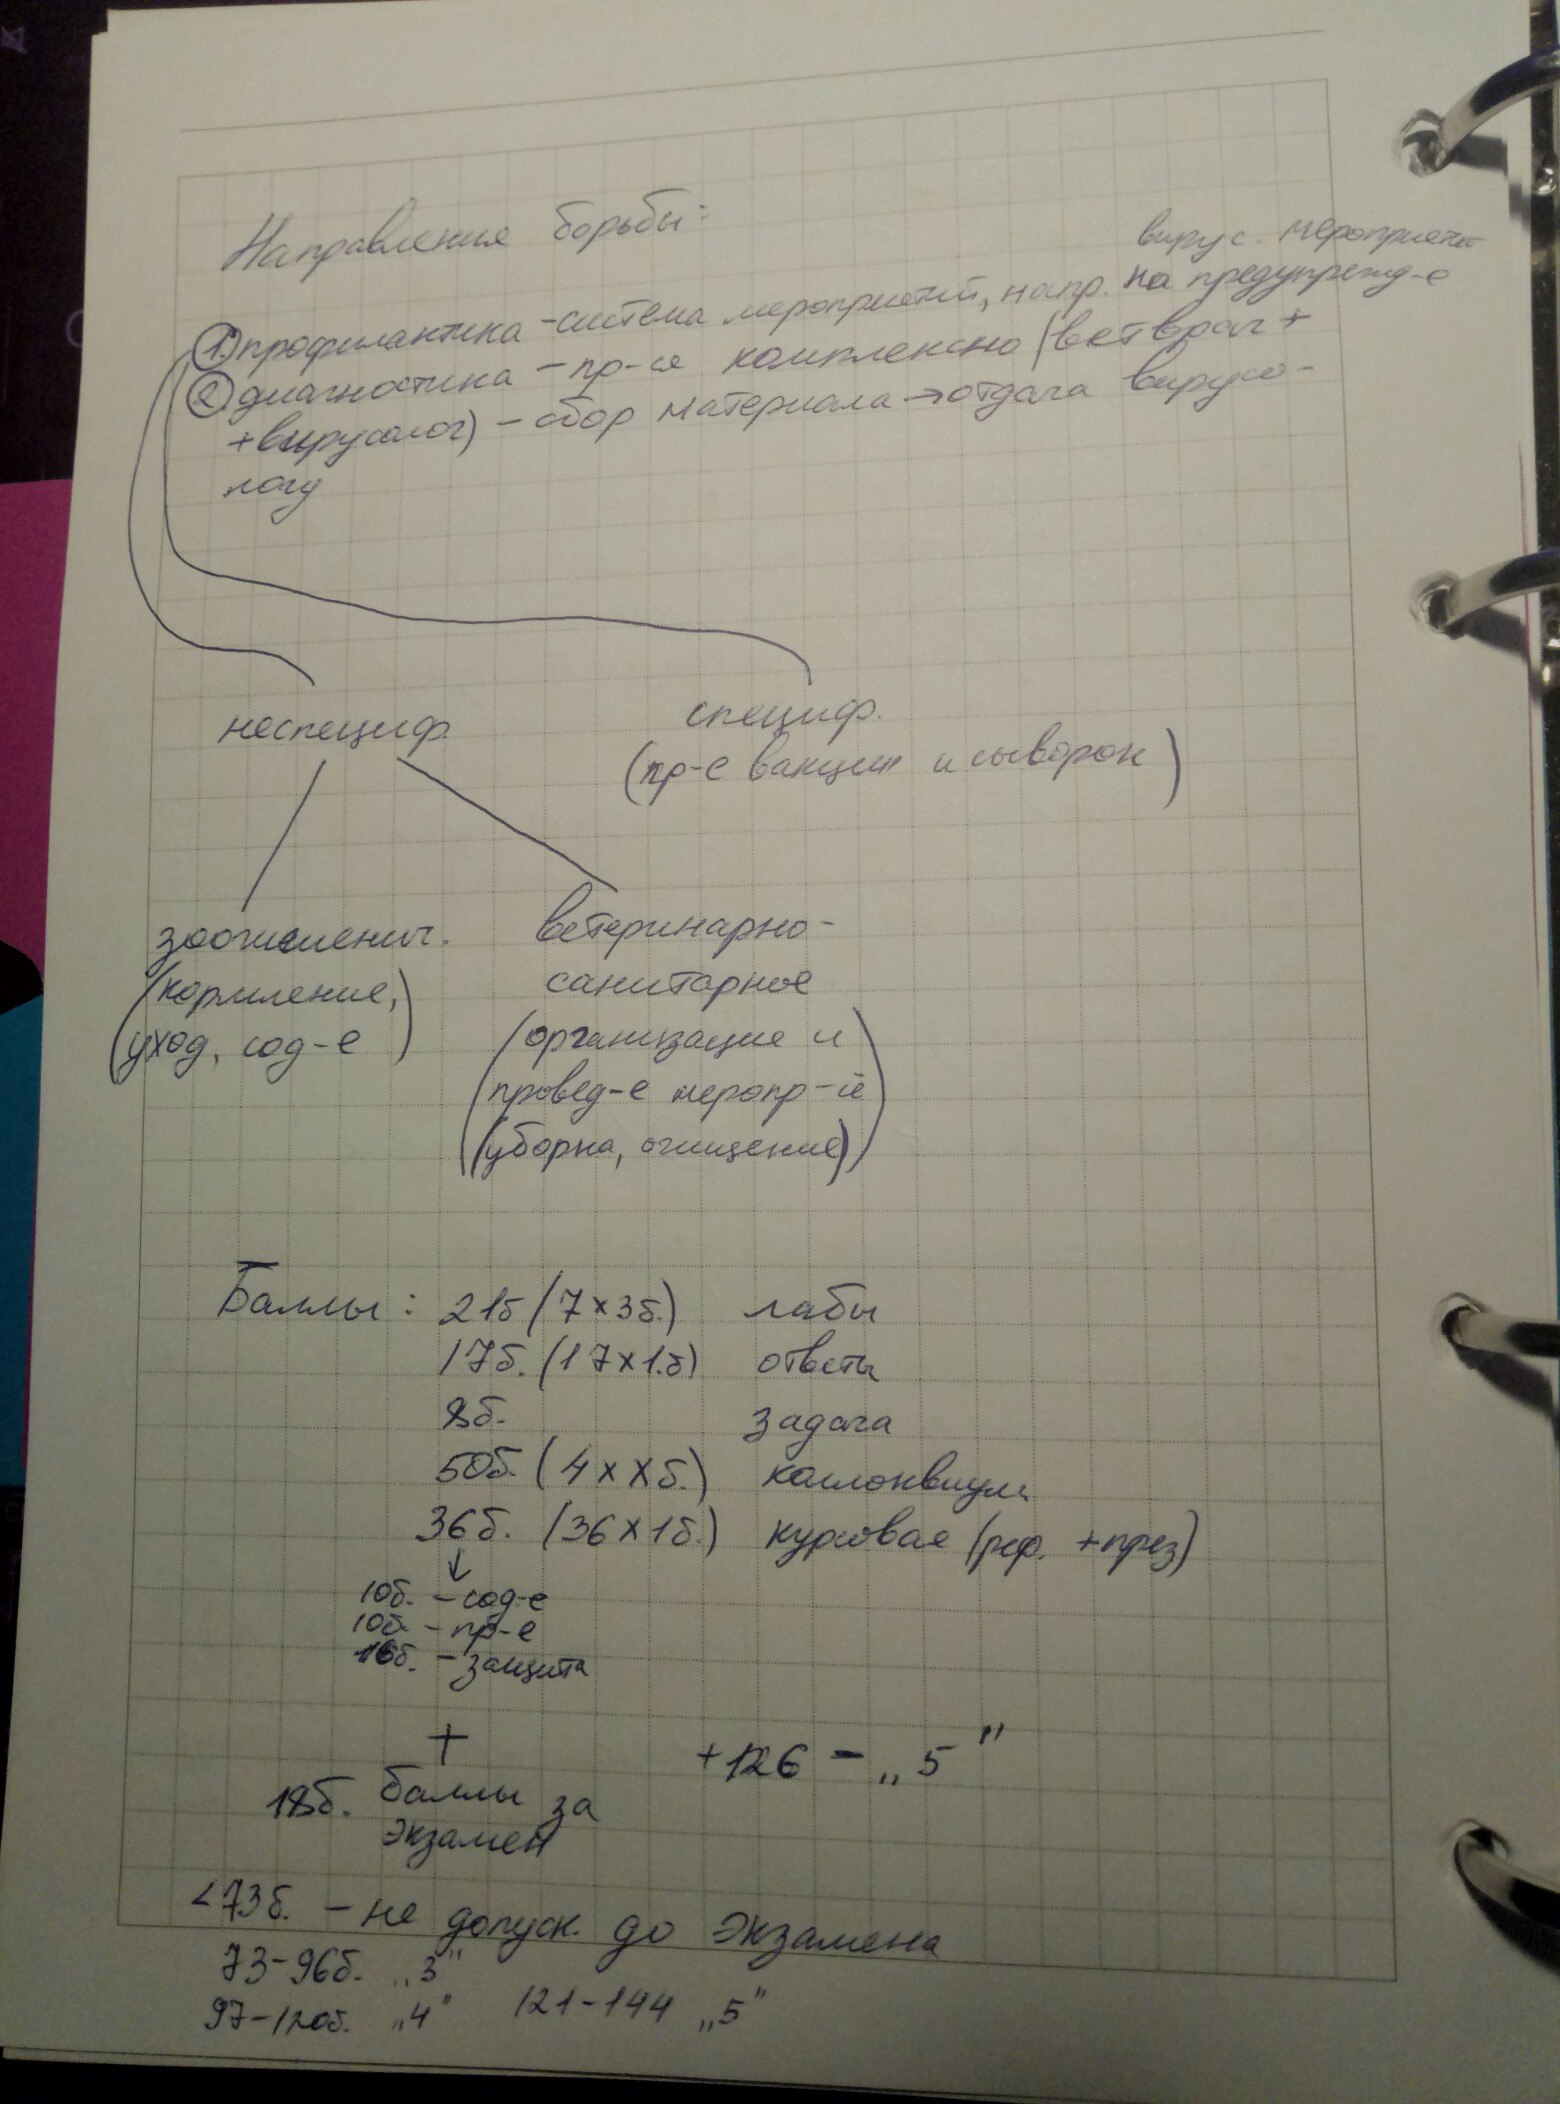 Направления борьбы:
вирус. мероприятий
1. профилактика - система мероприятий, напр. на предупрежд-е
2. диагностика - пр-ся комплексно (ветврач +
+ вирусолог) - сбор материала → отдача вирусо-
логу
неспециф. специф.
(пр-е вакцин и сыворок)
зоогигиенич. ветеринарно-
(кормление, санитарное
уход, сод-е) (организация и
провед-е меропр-й
(уборка, очищение))
Баллы: 21б (7×3б.) лабы
17б. (17×1.б) ответы
8б. задача
50б. (4×Хб.) коллоквиум
36б. (36×1б.) курсовая (реф. + през)
↓
10б. - сод-е
10б. - пр-е
16б. - защита
+
+126 - „5"
18б. баллы за
экзамен
<73б. - не допуск. до экзамена
73-96б. „3"
97-120б. „4" 121-144 „5"